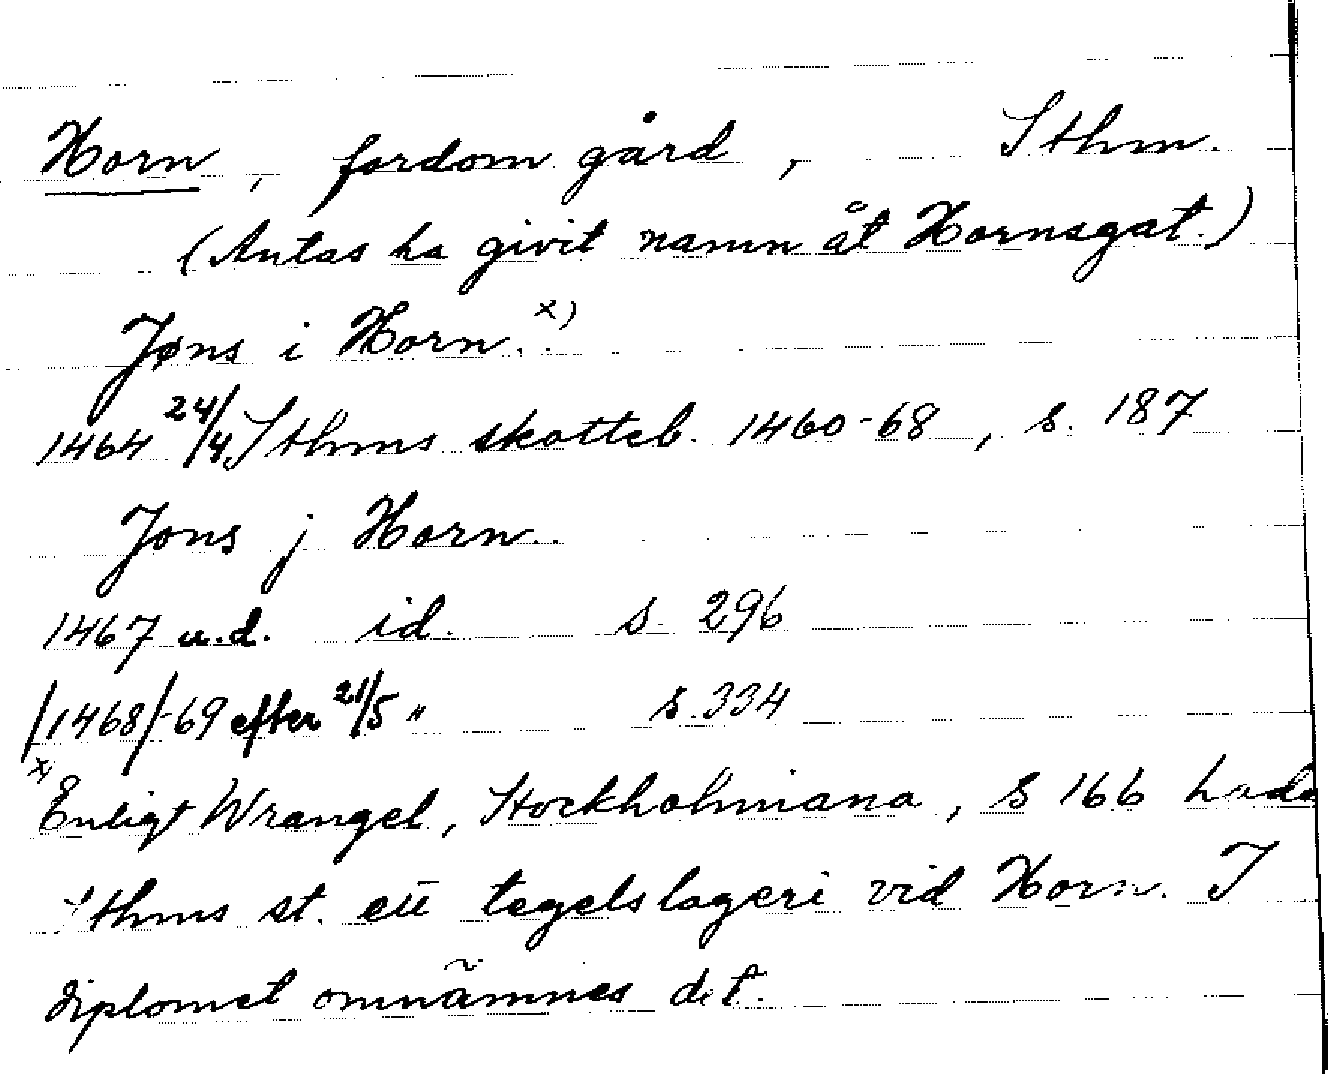 Horn, fordom gård, Sthm.
(Antas ha givit namn åt Hornsgat.)
Jøns i Horn. x)
1464 24/4 Sthms skatteb. 1460-68, s. 187
Jons j Horn.
1467 u.d. id. s. 296
/1468/-69 efter 21/5 " s. 334
x) Enligt Wrangel, Stockholmiana, s 166 hade
Sthms st. ett tegelslageri vid Horn. I
diplomet omnämnes det.